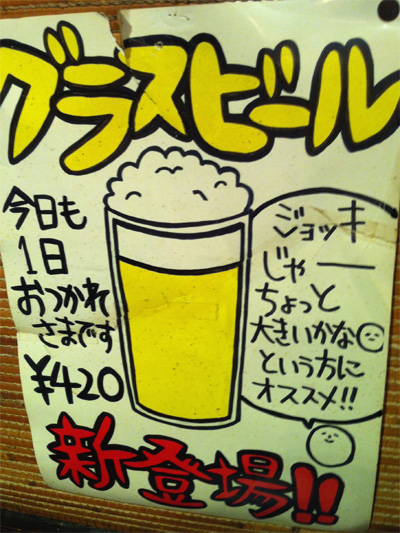 グラスビール
今日も
1日
おつかれ
さまです
¥420
ジョッキ
じゃー
ちょっと
大きいかな
という方に
オススメ!!
新登場!!